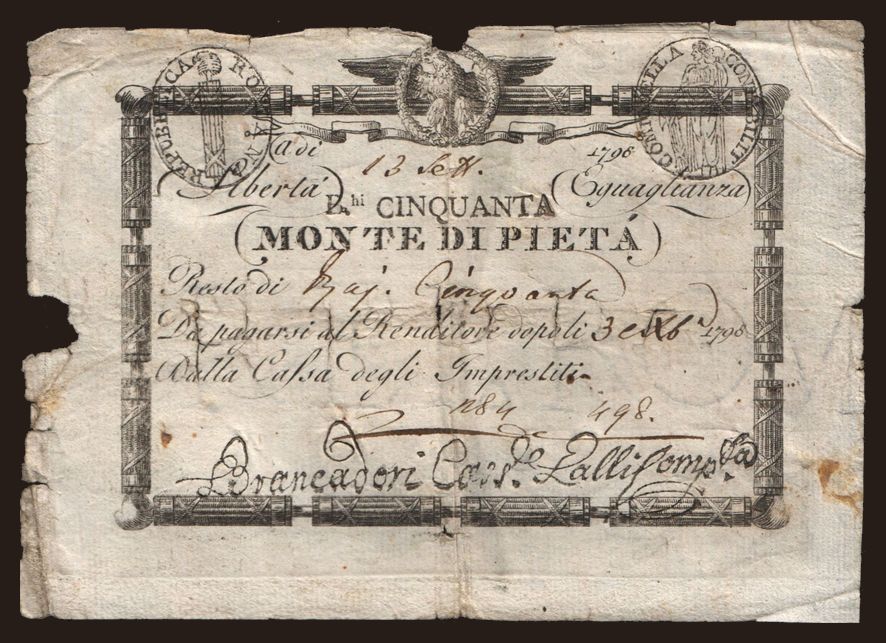 REPUBBLICA ROMANA
COMP. DELLA CONTABILIT
A di 13 Sett. 1798
Libertà Eguaglianza
B.hi CINQUANTA
MONTE DI PIETÁ
Resto di Baj. Cinquanta
Da pagarsi al Renditore dopo li 3 1798
Dalla Cassa degli Imprestiti
498.
Brancadori Cass.e Lalli Comp.ta